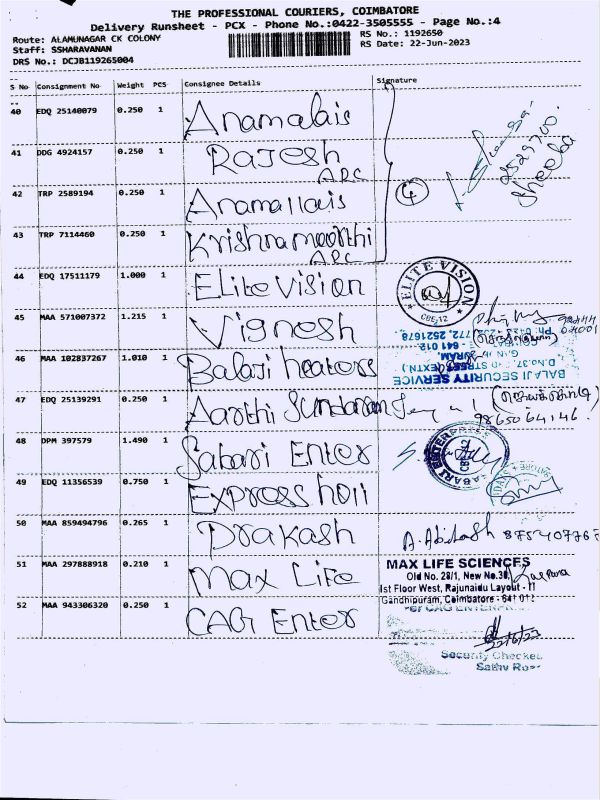 THE PROFESSIONAL COURIERS, COIMBATORE
Delivery Runsheet - PCX - Phone No.:0422-3505555 - Page No.:4
Route: ALAMUNAGAR CK COLONY RS No.: 1192650
Staff: SSHARAVANAN RS Date: 22-Jun-2023
DRS No.: DCJB119265004
S No Consignment No Weight PCS Consignee Details Signature
40 EDQ 25140079 0.250 1 Anamalais
41 DDG 4924157 0.250 1 Rajesh
APC
42 TRP 2589194 0.250 1 Anamallais
4
43 TRP 7114460 0.250 1 Krishramoorthi
APC
Sheeba
44 EDQ 17511179 1.000 1 Elite Vision
ELITE VISION
CBE-12
45 MAA 571007372 1.215 1 Vignesh
46 MAA 102837267 1.010 1 Balaji heaters
BALAJI SECURITY SERVICE
47 EDQ 25139291 0.250 1 Aarthi Sundaram
9865064146
48 DPM 397579 1.490 1 Sabari Enter
SABARI ENTERPRISES
49 EDQ 11356539 0.750 1 Express holi
50 MAA 859494796 0.265 1 Prakash
A. Abilash
51 MAA 297888918 0.210 1 Max Life
MAX LIFE SCIENCES
Old No. 28/1, New No.30,
1st Floor West, Rajunaidu Layout - 11
Gandhipuram, Coimbatore - 641 012
52 MAA 943306320 0.250 1 CAG Enter
22/6/23
Security Checked